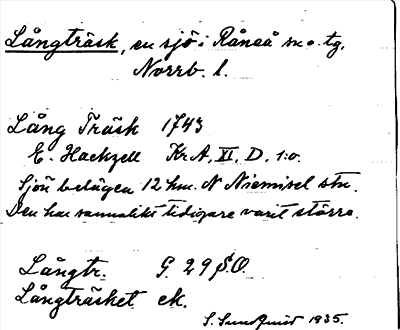 Långträsk, en sjö i Råneå sn o. tg.
Norrb. l.
Lång Träsk 1743
E. Hackzell Kr A, XI, D, 1:o.
Sjön belägen 12 km. N Niemisel stn.
Den har sannolikt tidigare varit större.
Långtr. G. 29 S.O.
Långträsket ek.
S. Sundqvist 1935.